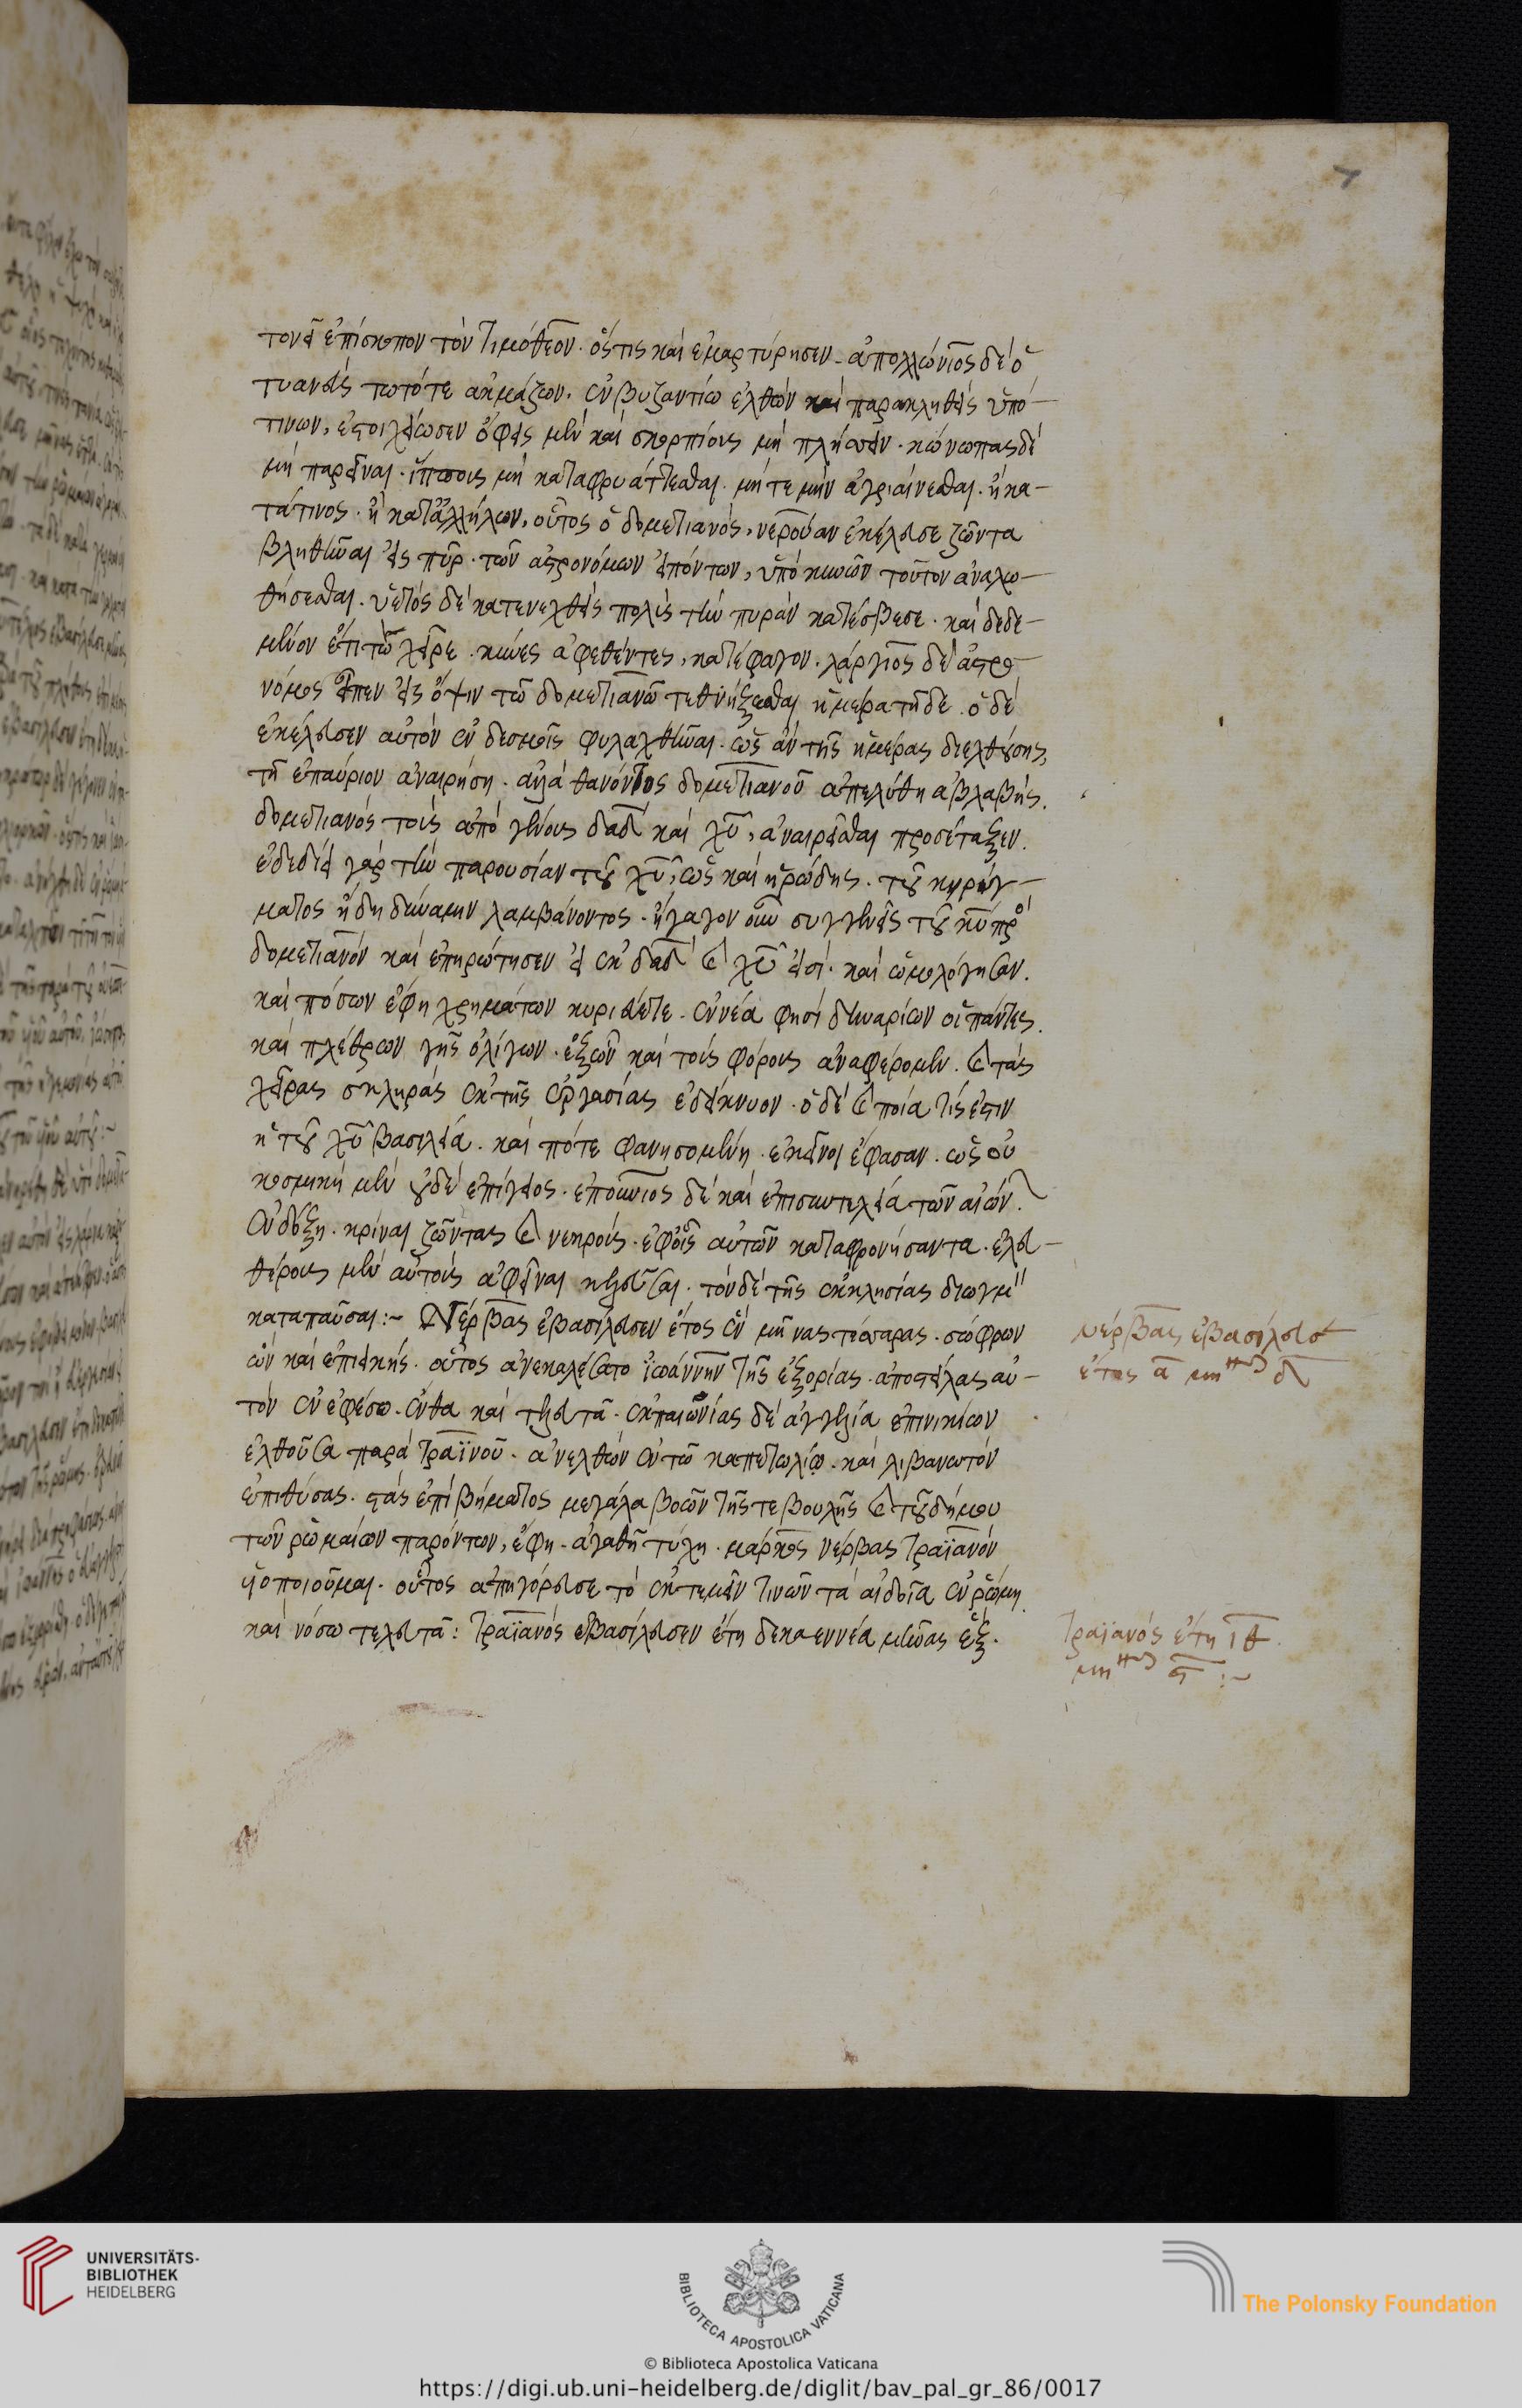 7
τονδ ἐπίσκοπον τὸν Τιμόθεον. ὅστις καὶ ἐμαρτύρησεν. ἀπολλώνιος δὲ ὁ
τυανεὺς τωτότε ἀκμάζων. ἐν βυζαντίω ἐλθὼν καὶ παρακληθεὶς ὑπό
τινων, ἐστοιχείωσεν ὄφεις μὲν καὶ σκορπίους μὴ πλήσσειν. κώνωπας δὲ
μὴ παρεῖναι. ἵππους μὴ καταφρυάττεσθαι. μήτε μὴν ἀγριαίνεσθαι. ἢ κα-
τάτινος. ἢ κατἀλλήλων, οὗτος ὁ δομετιανός, νερούαν ἐκέλευσε ζῶντα
βληθῆναι εἰς πῦρ. τῶν ἀστρονόμων εἰπόντων, ὑπὸ κυνῶν τοῦτον ἀναλω-
θήσεσθαι. ὑετὸς δὲ κατενεχθεὶς πολὺς τὴν πυρὰν κατέσβεσε. καὶ δεδε-
μένον ἔτι τὼ χεῖρε. κύνες ἀφεθέντες, κατέφαγον. λάργιος δὲ ἀστρο
νόμος εἶπεν εἰς ὄψιν τῶ δομετιανῶ τεθνήξεσθαι ἡμέρα τῆδε. ὁ δὲ
ἐκέλευσεν αὐτὸν ἐν δεσμοῖς φυλαχθῆναι. ὡς ἂν τῆς ἡμέρας διελθούσης,
τῆ ἐπαύριον ἀναιρήση. ἀλλὰ θανόντος δομετιανοῦ ἀπελύθη ἀβλαβής.
δομετιανὸς τοὺς ἀπὸ γένους δαδ καὶ χυ, ἀναιρεῖσθαι προσέταξεν.
ἐδεδίει γὰρ τὴν παρουσίαν τοῦ χυ, ὡς καὶ ἡρώδης. τοῦ κηρύγ-
ματος ἤδη δύναμιν λαμβάνοντος. ἤγαγον οὖν συγγενεῖς τοῦ κυ πρὸ
δομετιανὸν καὶ ἐπηρώτησεν εἰ ἐκ δαδ καὶ χυ εἰσί. καὶ ὡμολόγησαν.
καὶ πόσων ἔφη χρημάτων κυριεύετε. ἐννέα φησὶ δηναρίων οἱ πάντες.
καὶ πλέθρων γῆς ὀλίγων. ἐξ ὧν καὶ τοὺς φόρους ἀναφέρομεν. καὶ τὰς
χεῖρας σκληρὰς ἐκ τῆς ἐργασίας ἐδείκνυον. ὁ δὲ καὶ ποία τίς ἐστιν
ἡ τοῦ χυ βασιλεία. καὶ πότε φανησομένη. ἐκεῖνοι ἔφασαν. ὡς οὐ
κοσμικὴ μὲν οὐδὲ ἐπίγειος. ἐπουράνιος δὲ καὶ ἐπισυντελεία τῶν αἰών
ἐν δόξη. κρίναι ζῶντας καὶ νεκρούς. ἐφοἷς αὐτῶν καταφρονήσαντα. ἐλευ-
θέρους μὲν αὐτοὺς ἀφεῖναι κελεῦσαι. τὸν δὲ τῆς ἐκκλησίας διωγμ
καταπαῦσαι:~ Νέρβας ἐβασίλευσεν ἔτος ἓν μῆνας τέσσαρας. σώφρων
ὢν καὶ ἐπιεικής. οὗτος ἀνεκαλέσατο ἰωάννην τῆς ἐξορίας. ἀποστείλας αὐ-
τὸν ἐν ἐφέσω. ἔνθα καὶ τελευτᾶ. ἐκπαιωνίας δὲ ἀγγελία ἐπινικίων
ἐλθοῦσα παρὰ τραϊνοῦ. ἀνελθὼν ἐν τῶ καπετωλίω. καὶ λιβανωτὸν
ἐπιθύσας. στὰς ἐπὶ βήματος μεγάλα βοῶν τῆς τε βουλῆς καὶ τοῦ δήμου
τῶν ῥωμαίων παρόντων, ἔφη. ἀγαθῆ τύχη. μάρκος νέρβας τραϊανὸν
ὑοποιοῦμαι. οὗτος ἀπηγόρευσε τὸ ἐκτεμεῖν τινῶν τὰ αἰδοῖα ἐν ῥώμη.
καὶ νόσω τελευτᾶ: τραϊανὸς ἐβασίλευσεν ἔτη δεκαεννέα μῆνας ἕξ.
νέρβας ἐβασίλευσ
ἔτος α μην δ
τραϊανὸς ἔτη ιθ.
μην ς :~
UNIVERSITÄTS-
BIBLIOTHEK
HEIDELBERG
BIBLIOTECA APOSTOLICA VATICANA
The Polonsky Foundation
© Biblioteca Apostolica Vaticana
https://digi.ub.uni-heidelberg.de/diglit/bav_pal_gr_86/0017